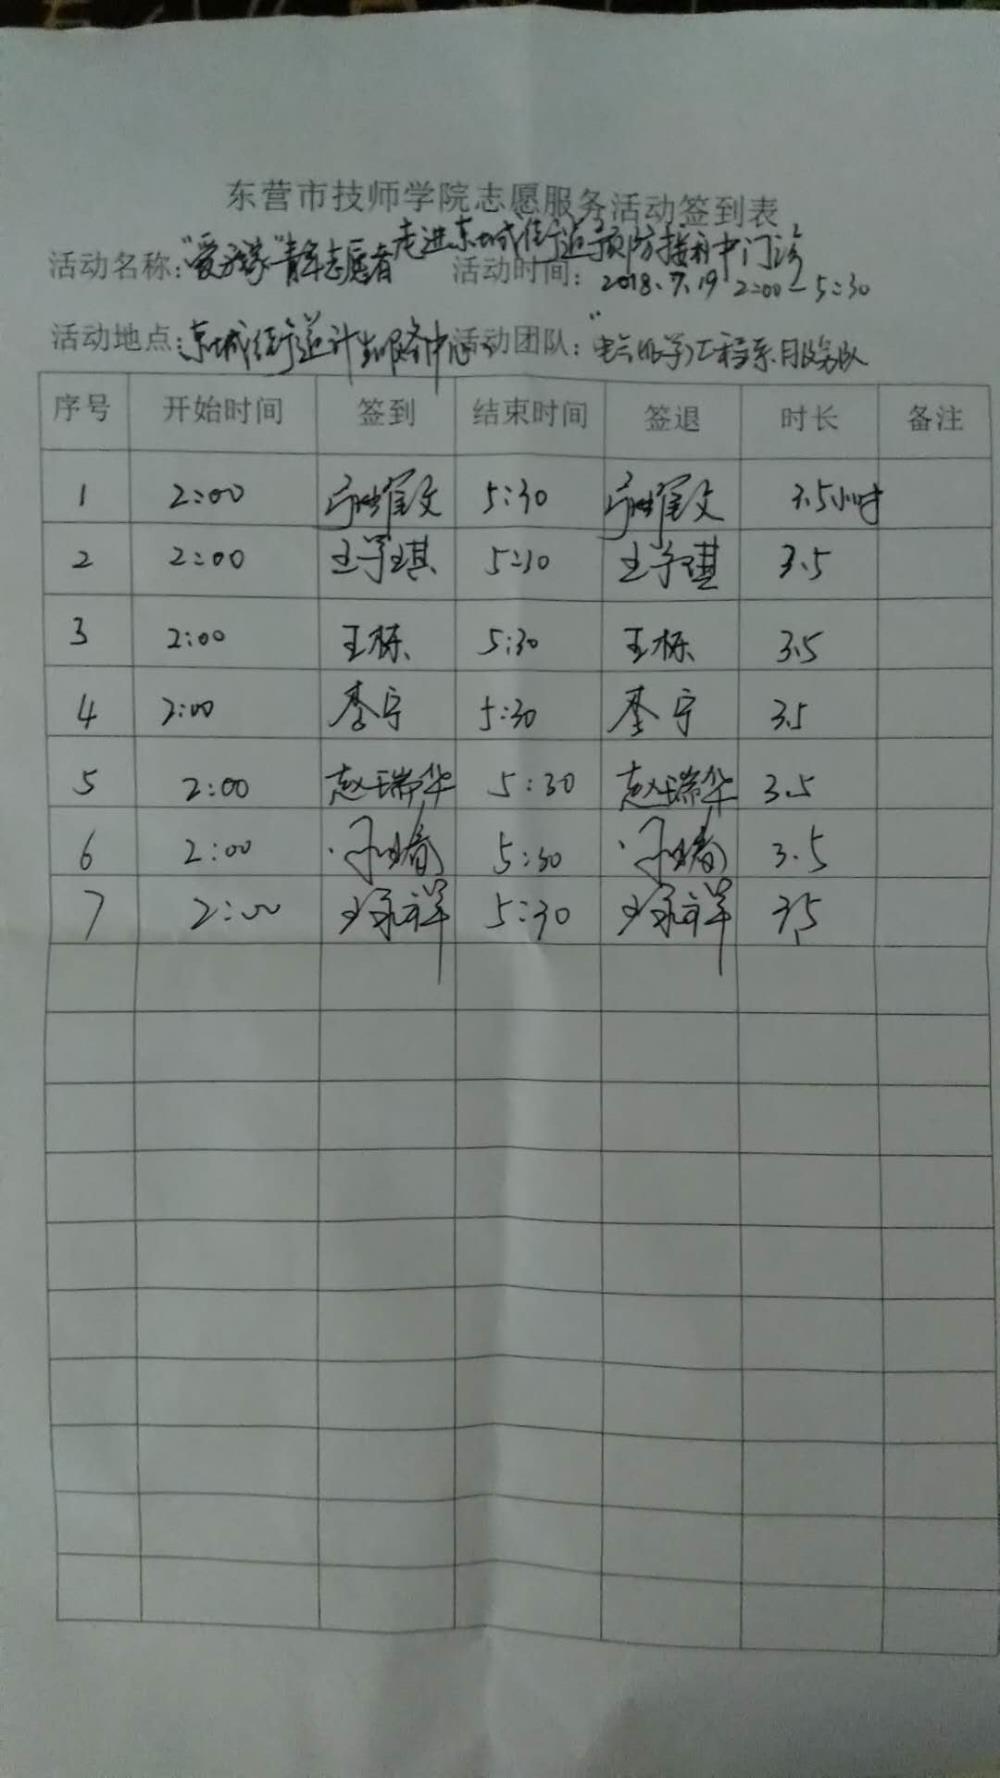 东营市技师学院志愿服务活动签到表
活动名称：青年志愿者走进东城街道预防接种门诊
活动时间：2018.7.19 2:00-5:30
活动地点：东城街道计生服务中心 活动团队：工程系服务队
序号 开始时间 签到 结束时间 签退 时长 备注
1 2:00 5:30 3.5小时
2 2:00 王学琪 5:30 王学琪 3.5
3 2:00 王栋 5:30 王栋 3.5
4 2:00 李宁 5:30 李宁 3.5
5 2:00 赵瑞华 5:30 赵瑞华 3.5
6 2:00 5:30 3.5
7 2:00 5:30 3.5